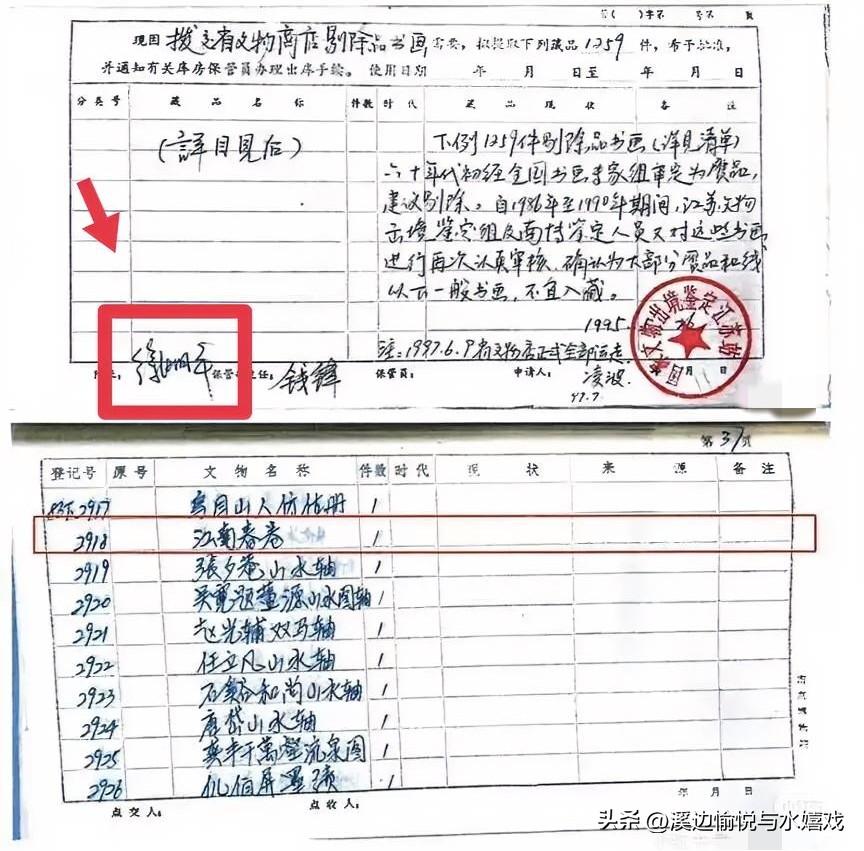 字第 号
现因 拨交省文物商店剔除品书画 需要,拟提取下列藏品 1259 件,希予批准,
并通知有关库房保管员办理出库手续。 使用日期 年 月 日至 年 月 日
分类号 藏品名称 件数 时代 藏品现状 备注
(詳目見后)
下列1259件剔除品书画(详見清单)
六十年代初经全国书画专家组审定为赝品,
建议剔除。自1986年至1990年期间,江苏文物
出境鉴定组及南博鉴定人员又对这些书画
进行再次认真审核,确认为大部分赝品和线
以下一般书画,不宜入藏。
1995
注:1997.6.9省文物店正式全部运走
保管 主任: 钱锋 保管员: 申请人: 凌波 月 日
97.7
国家文物出境鉴定江苏站
第 37 页
登记号 原号 文物名称 件数 时代 现状 来源 备注
2917 乌目山人仿古册 1
2918 江南春卷 1
2919 張夕庵山水轴 1
2920 吴寛题董源山水图轴 1
2921 赵光辅双马轴 1
2922 任立凡山水轴 1
2923 石谿和尚山水轴 1
2924 唐岱山水轴 1
2925 龚半千萬壑流泉图 1
2926 仇伯屏墨蹟 1
点交人: 点收人: 年 月 日
头条 @溪边愉悦与水嬉戏